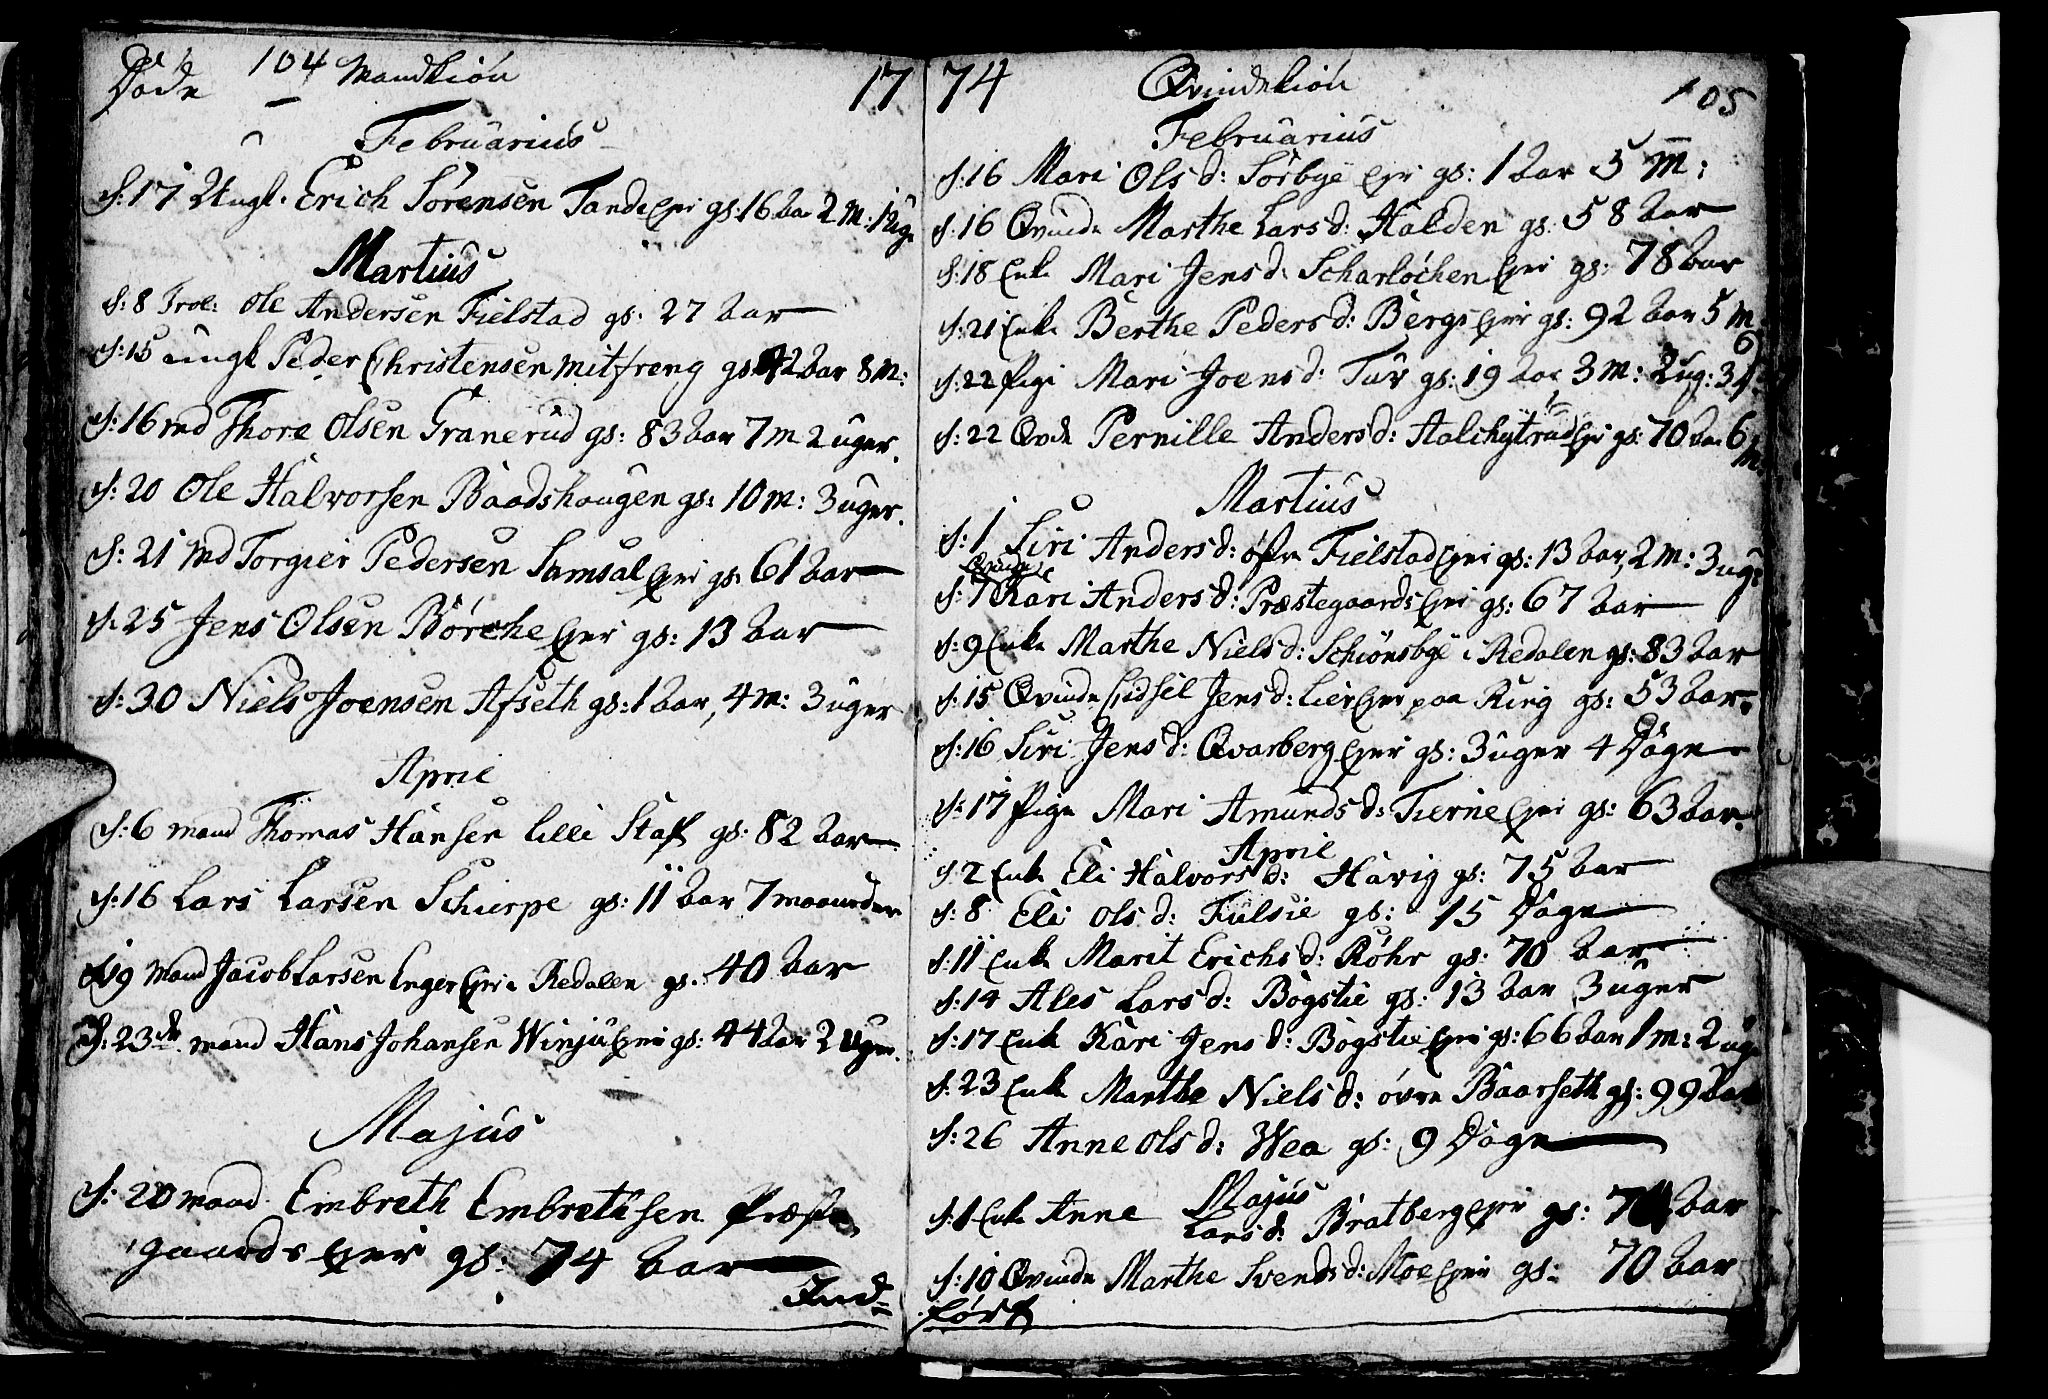 Døde 104 Mandkiøn 17
Februarius
d: 17 Ungk. Erich Sørensen Tande Eyer gl: 16 aar 2 M: 1 ug.
Martius
d: 8 Ole Andersen Fielstad gl: 27 aar
d: 15 ungk Peder Christensen Mitfreng gl: 42 aar 8 M:
d: 16 md Thore Olsen Granerud gl: 83 aar 7 M 2 uger.
d: 20 Ole Halvorsen Baadshaugen gl: 10 M: 3 uger.
d: 21 md Torgier Pedersen Samsal Eyer gl: 61 aar
d. 25 Jens Olsen Børche Eyer gl: 13 aar
d: 30 Niels Joensen Afseth gl: 1 aar, 4 M: 3 uger
April
d: 6 mand Thomas Hansen Lille Staf gl: 82 aar
d: 16 Lars Larsen Schierpe gl: 11 aar 7 maaneder
d 19 Mand Jacob Larsen Enger Eyer i Redalen gl. 40 aar
d: 23de mand Hans Johansen Winju Eyer gl: 44 aar 2 uger.
Majus
d: 20 mand Embreth Embrethsen Præste
gaards Eyer gl: 74 aar
Ind=
74 Qvindekiön 105
Februarius
d: 16 Mari Ols d: Sørbye Eyer gl: 1 aar 5 M:
d: 16 Qvinde Marthe Lars d: Halden gl: 58 aar
d: 18 Enke Mari Jens d: Scharløchen Eyer gl: 78 aar
d: 21 Enke Berthe Peders d: Bergs Eyer gl: 92 aar 5 M
d: 22 Pige Mari Joens d: Tuv gl: 19 aar 3 M: 2 ug: 3 d:
d: 22 Qvde Pernille Anders d: Aalchytrud Eyer gl: 70 aar 6 M:
Martius
d: 1 Siri Anders d: øfre Fielstad Eyer gl: 13 aar, 2 M: 3 ug:
Qvinde
d: 7 Kari Anders d: Præstegaards Eyer gl: 67 aar
d: 9 Enke Marthe Niels d: Schiønsbye i Redalen gl: 83 aar
d: 15 Qvinde Eidsel Jens d: Lier Eyer paa Ring gl: 53 aar.
d: 16 Siri Jens d: Qvarberg Eyer gl: 3 uger 4 Døgn
d: 17 Pige Mari Amunds d: Tierne Eyer gl: 63 aar.
April
d: 2 Enke Eli Halvors d: Havig gl: 75 aar
d: 8 Eli Ols d: Fulsie gl: 15 Døgn
d: 11 Enke Marit Erichs d: Røhr gl: 70 aar
d: 14 Ales Lars d: Bøgstie gl: 13 aar 3 uger
d: 17 Enke Kari Jens d: Bøgstie Eyer gl: 66 aar 1 M: 2 ug
d: 23 Enke Marthe Niels d: øvre Baarseth gl: 99 aar
d: 26 Anne Ols d: Wea gl: 9 Døgn
Majus
d: 1 Enke Anne Lars d: Bratberg Eyer gl: aar
d: 10 Qvinde Marthe Svends d: Moe Eyer gl: 70 aar
ført